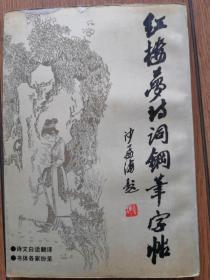 红楼梦诗词钢笔字帖
沙孟海题
●诗文白话翻译
●书体各家纷呈